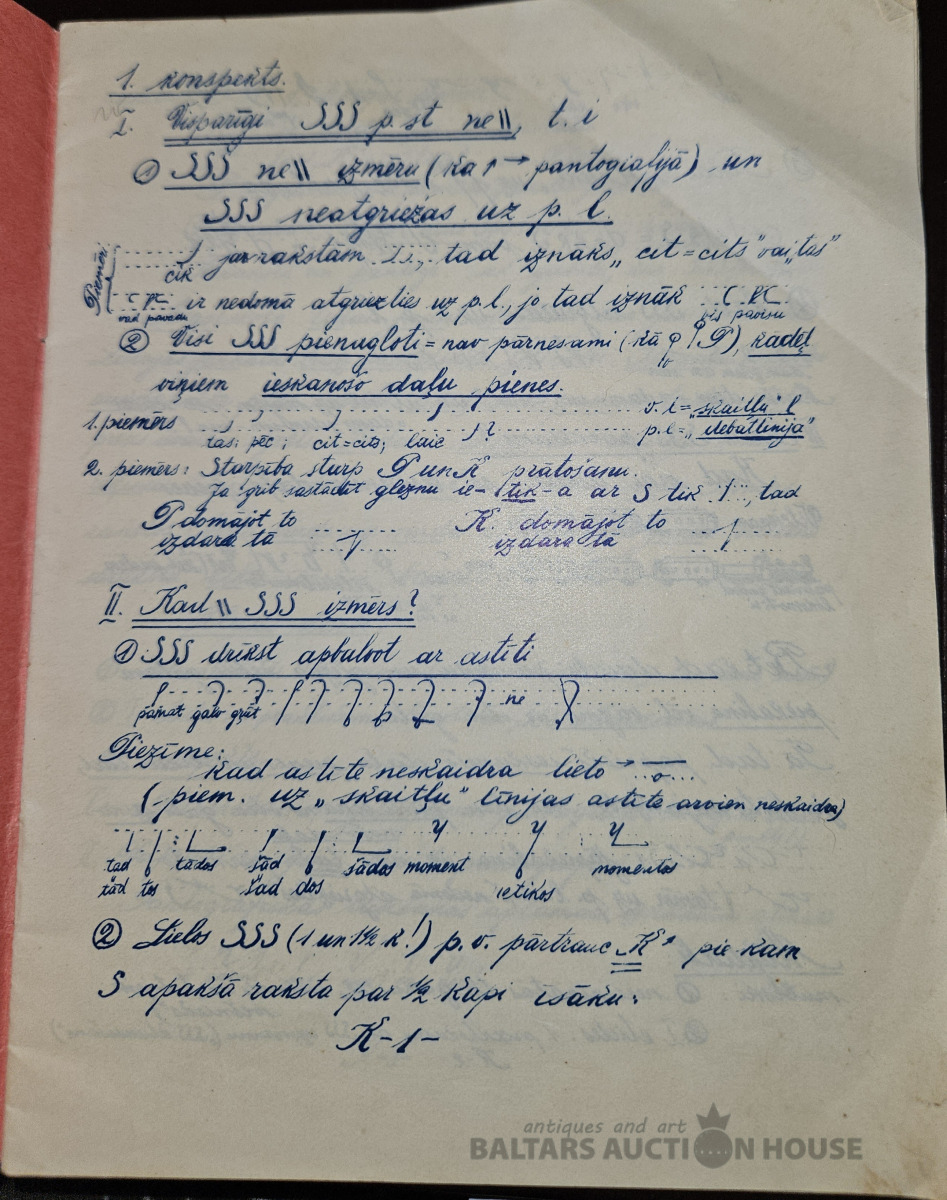 1. konspekts.
I. Vispārīgi SSS p. st ne ||, t. i
① SSS ne || izmēru (kā ↑ → pantogrāfijā) un
SSS neatgriežas uz p. l.
Piemēri
cik
ja rakstām, tad iznāks „cit = cits" vai „tas"
ir nedomā atgriezties uz p. l., jo tad iznāk
② Visi SSS pienagloti = nav pārnesami (kā), kādēļ
viņiem ieskaņošo daļu pienes.
1. piemērs v. l = „skaitļu" l
p. l = „debatlinija"
tas; pēc; cit = cits; laic ?
2. piemērs: Starpība starp P un K prātošanu.
Ja grib sastādīt gleznu ie-tik-a ar S tik, tad
P domājot to K. domājot to
izdara tā izdara tā
II. Kad || SSS izmērs?
① SSS drīkst apbalvot ar astīti
pamat galv grūt ne
Piezīme:
Kad astīte neskaidra lieto → —o...
(piem. uz „skaitļu" līnijas astīte arvien neskaidra)
tad tādos šād šādos moment momentos
tād tos šad dos ietikos
② Lielos SSS (1 un 1½ k!) p. v. pārtrauc K↑ pie kam
S apakšā raksta par ½ kāpi īsāku:
K-1-
antiques and art
BALTARS AUCTION HOUSE